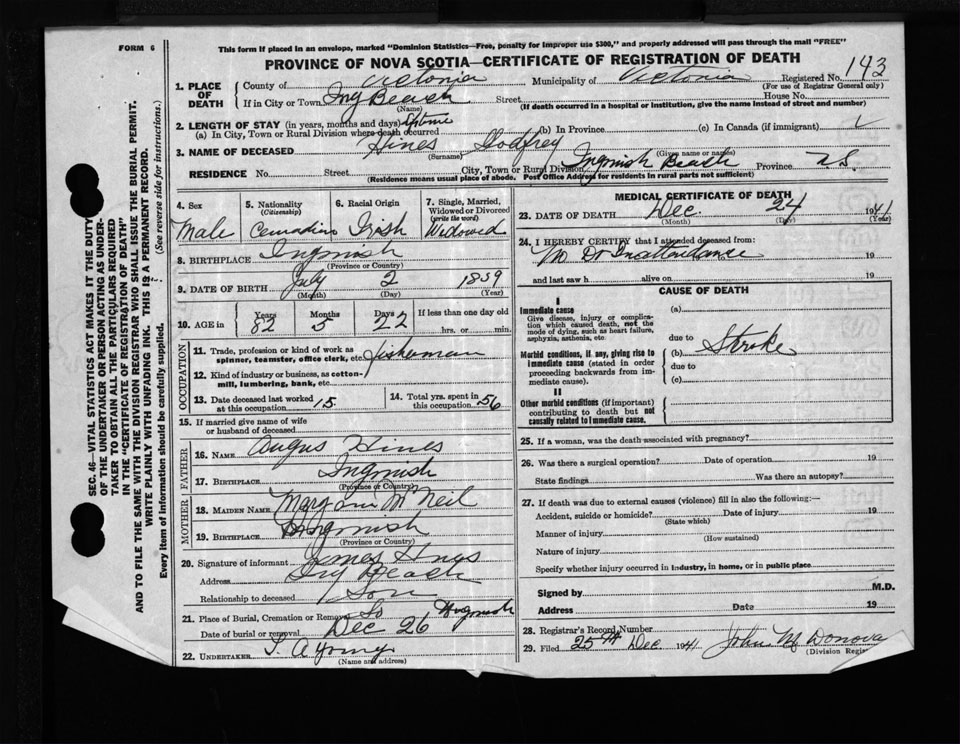 FORM 6
This form if placed in an envelope, marked "Dominion Statistics—Free, penalty for improper use $300," and properly addressed will pass through the mail "FREE"
PROVINCE OF NOVA SCOTIA—CERTIFICATE OF REGISTRATION OF DEATH
1. PLACE OF DEATH County of Victoria Municipality of Victoria Registered No. 143
(For use of Registrar General only)
If in City or Town Ing Beach Street House No.
(Name) (If death occurred in a hospital or institution, give the name instead of street and number)
2. LENGTH OF STAY (in years, months and days) Lifetime
(a) In City, Town or Rural Division where death occurred (b) In Province (c) In Canada (if immigrant)
3. NAME OF DECEASED Hines Godfrey
(Surname) (Given name or names)
RESIDENCE No. Street City, Town or Rural Division Ingnish Beach Province N S.
(Residence means usual place of abode. Post Office Address for residents in rural parts not sufficient)
4. Sex Male
5. Nationality (Citizenship) Canadian
6. Racial Origin Irish
7. Single, Married, Widowed or Divorced (write the word) Widowed
8. BIRTHPLACE Ingnish
(Province or Country)
9. DATE OF BIRTH July 2 1839
(Month) (Day) (Year)
10. AGE in Years Months Days If less than one day old
82 5 22 hrs. or min.
OCCUPATION
11. Trade, profession or kind of work as spinner, teamster, office clerk, etc. fisherman
12. Kind of industry or business, as cotton-mill, lumbering, bank, etc.
13. Date deceased last worked at this occupation 15
14. Total yrs. spent in this occupation 56
15. If married give name of wife or husband of deceased
FATHER
16. NAME Angus Hines
17. BIRTHPLACE Ingnish
(Province or Country)
MOTHER
18. MAIDEN NAME Mary ann McNeil
19. BIRTHPLACE Ingnish
(Province or Country)
20. Signature of informant James Hines
Address Ing Beach
Relationship to deceased Son
21. Place of Burial, Cremation or Removal So Ingnish
Date of burial or removal Dec 26
22. UNDERTAKER
(Name and address)
MEDICAL CERTIFICATE OF DEATH
23. DATE OF DEATH Dec. 24 1941
(Month) (Day) (Year)
24. I HEREBY CERTIFY that I attended deceased from:
No Dr In attendance 19
and last saw h alive on 19
CAUSE OF DEATH
I
Immediate cause (a)
Give disease, injury or complication which caused death, not the mode of dying, such as heart failure, asphyxia, asthenia, etc.
due to
Morbid conditions, if any, giving rise to immediate cause (stated in order proceeding backwards from immediate cause).
(b) Stroke
due to
(c)
II
Other morbid conditions (if important) contributing to death but not causally related to immediate cause.
25. If a woman, was the death associated with pregnancy?
26. Was there a surgical operation? Date of operation 19
State findings Was there an autopsy?
27. If death was due to external causes (violence) fill in also the following:—
Accident, suicide or homicide? Date of injury 19
(State which)
Manner of injury
(How sustained)
Nature of injury
Specify whether injury occurred in industry, in home, or in public place
Signed by M.D.
Address Date 19
28. Registrar's Record Number
29. Filed 25th Dec 1941 John McDonova
(Division Regist
SEC. 46—VITAL STATISTICS ACT MAKES IT THE DUTY
OF THE UNDERTAKER OR PERSON ACTING AS UNDER-
TAKER TO OBTAIN ALL THE PARTICULARS REQUIRED
IN THE "CERTIFICATE OF REGISTRATION OF DEATH"
AND TO FILE THE SAME WITH THE DIVISION REGISTRAR WHO SHALL ISSUE THE BURIAL PERMIT.
WRITE PLAINLY WITH UNFADING INK. THIS IS A PERMANENT RECORD.
Every item of information should be carefully supplied. (See reverse side for instructions.)